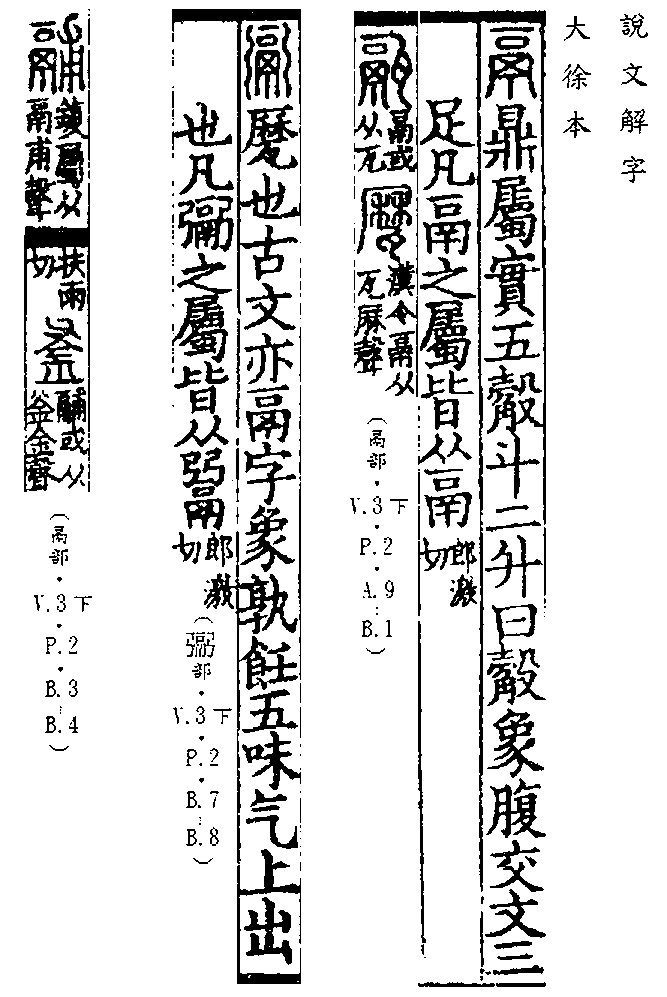 說文解字
大徐本
鬲鼎屬實五觳斗二升曰觳象腹交文三
足凡鬲之屬皆从鬲郎激切
䰛鬲或从瓦
䰜漢令鬲从瓦厤聲
(鬲部·V.3下·P.2·A.9…B.1)
䰜㽁也古文亦鬲字象孰飪五味气上出
也凡䰜之屬皆从䰜郎激切
(䰜部·V.3下·P.2·B.7…B.8)
鬴鍑屬从鬲甫聲扶雨切
釜鬴或从父金聲
(鬲部·V.3下·P.2·B.3…B.4)